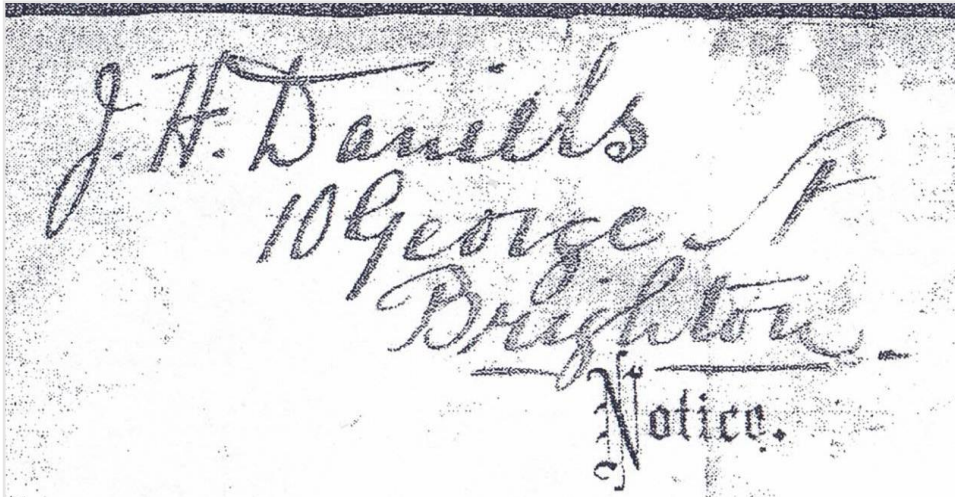 J. H. Daniels
10 George St
Brighton
Notice.